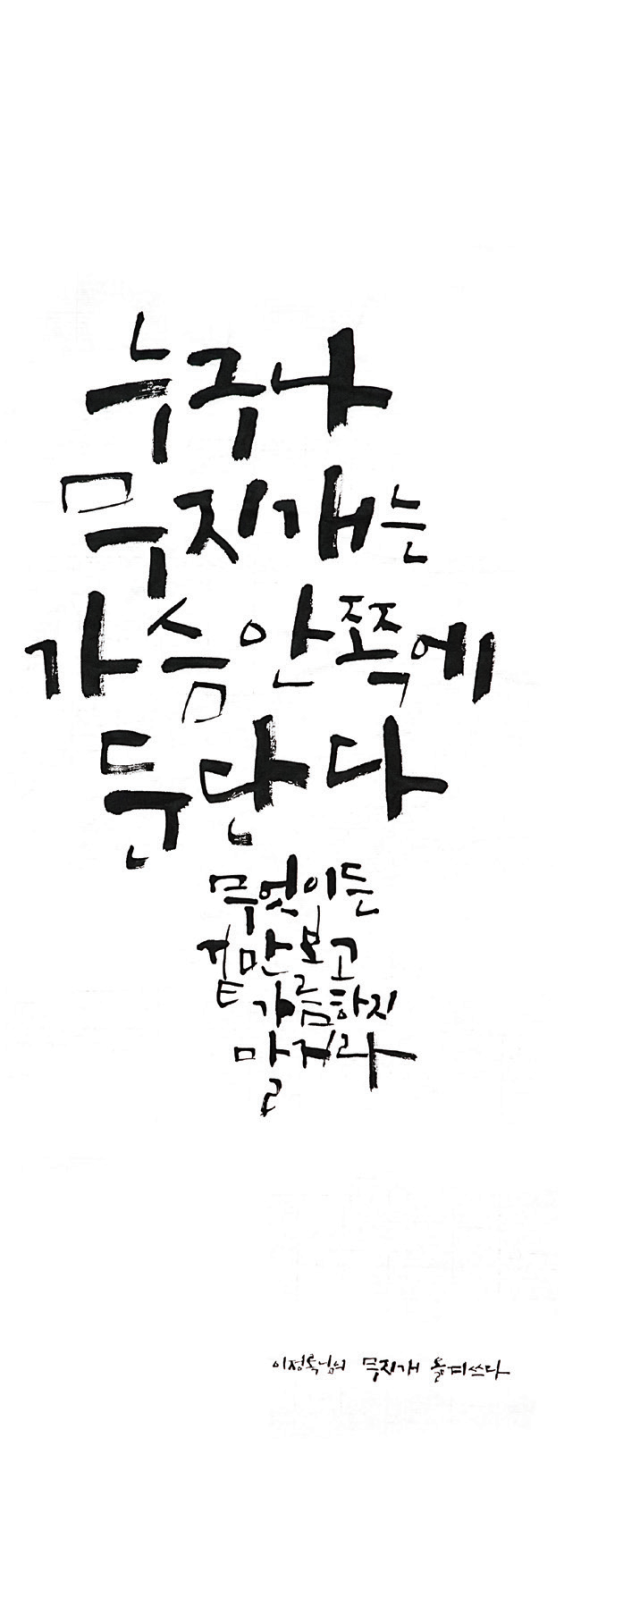 누구나
무지개는
가슴 안쪽에
둔단다
무엇이든
겉만 보고
가름하지
말거라
이정록님의 무지개 옮겨쓰다